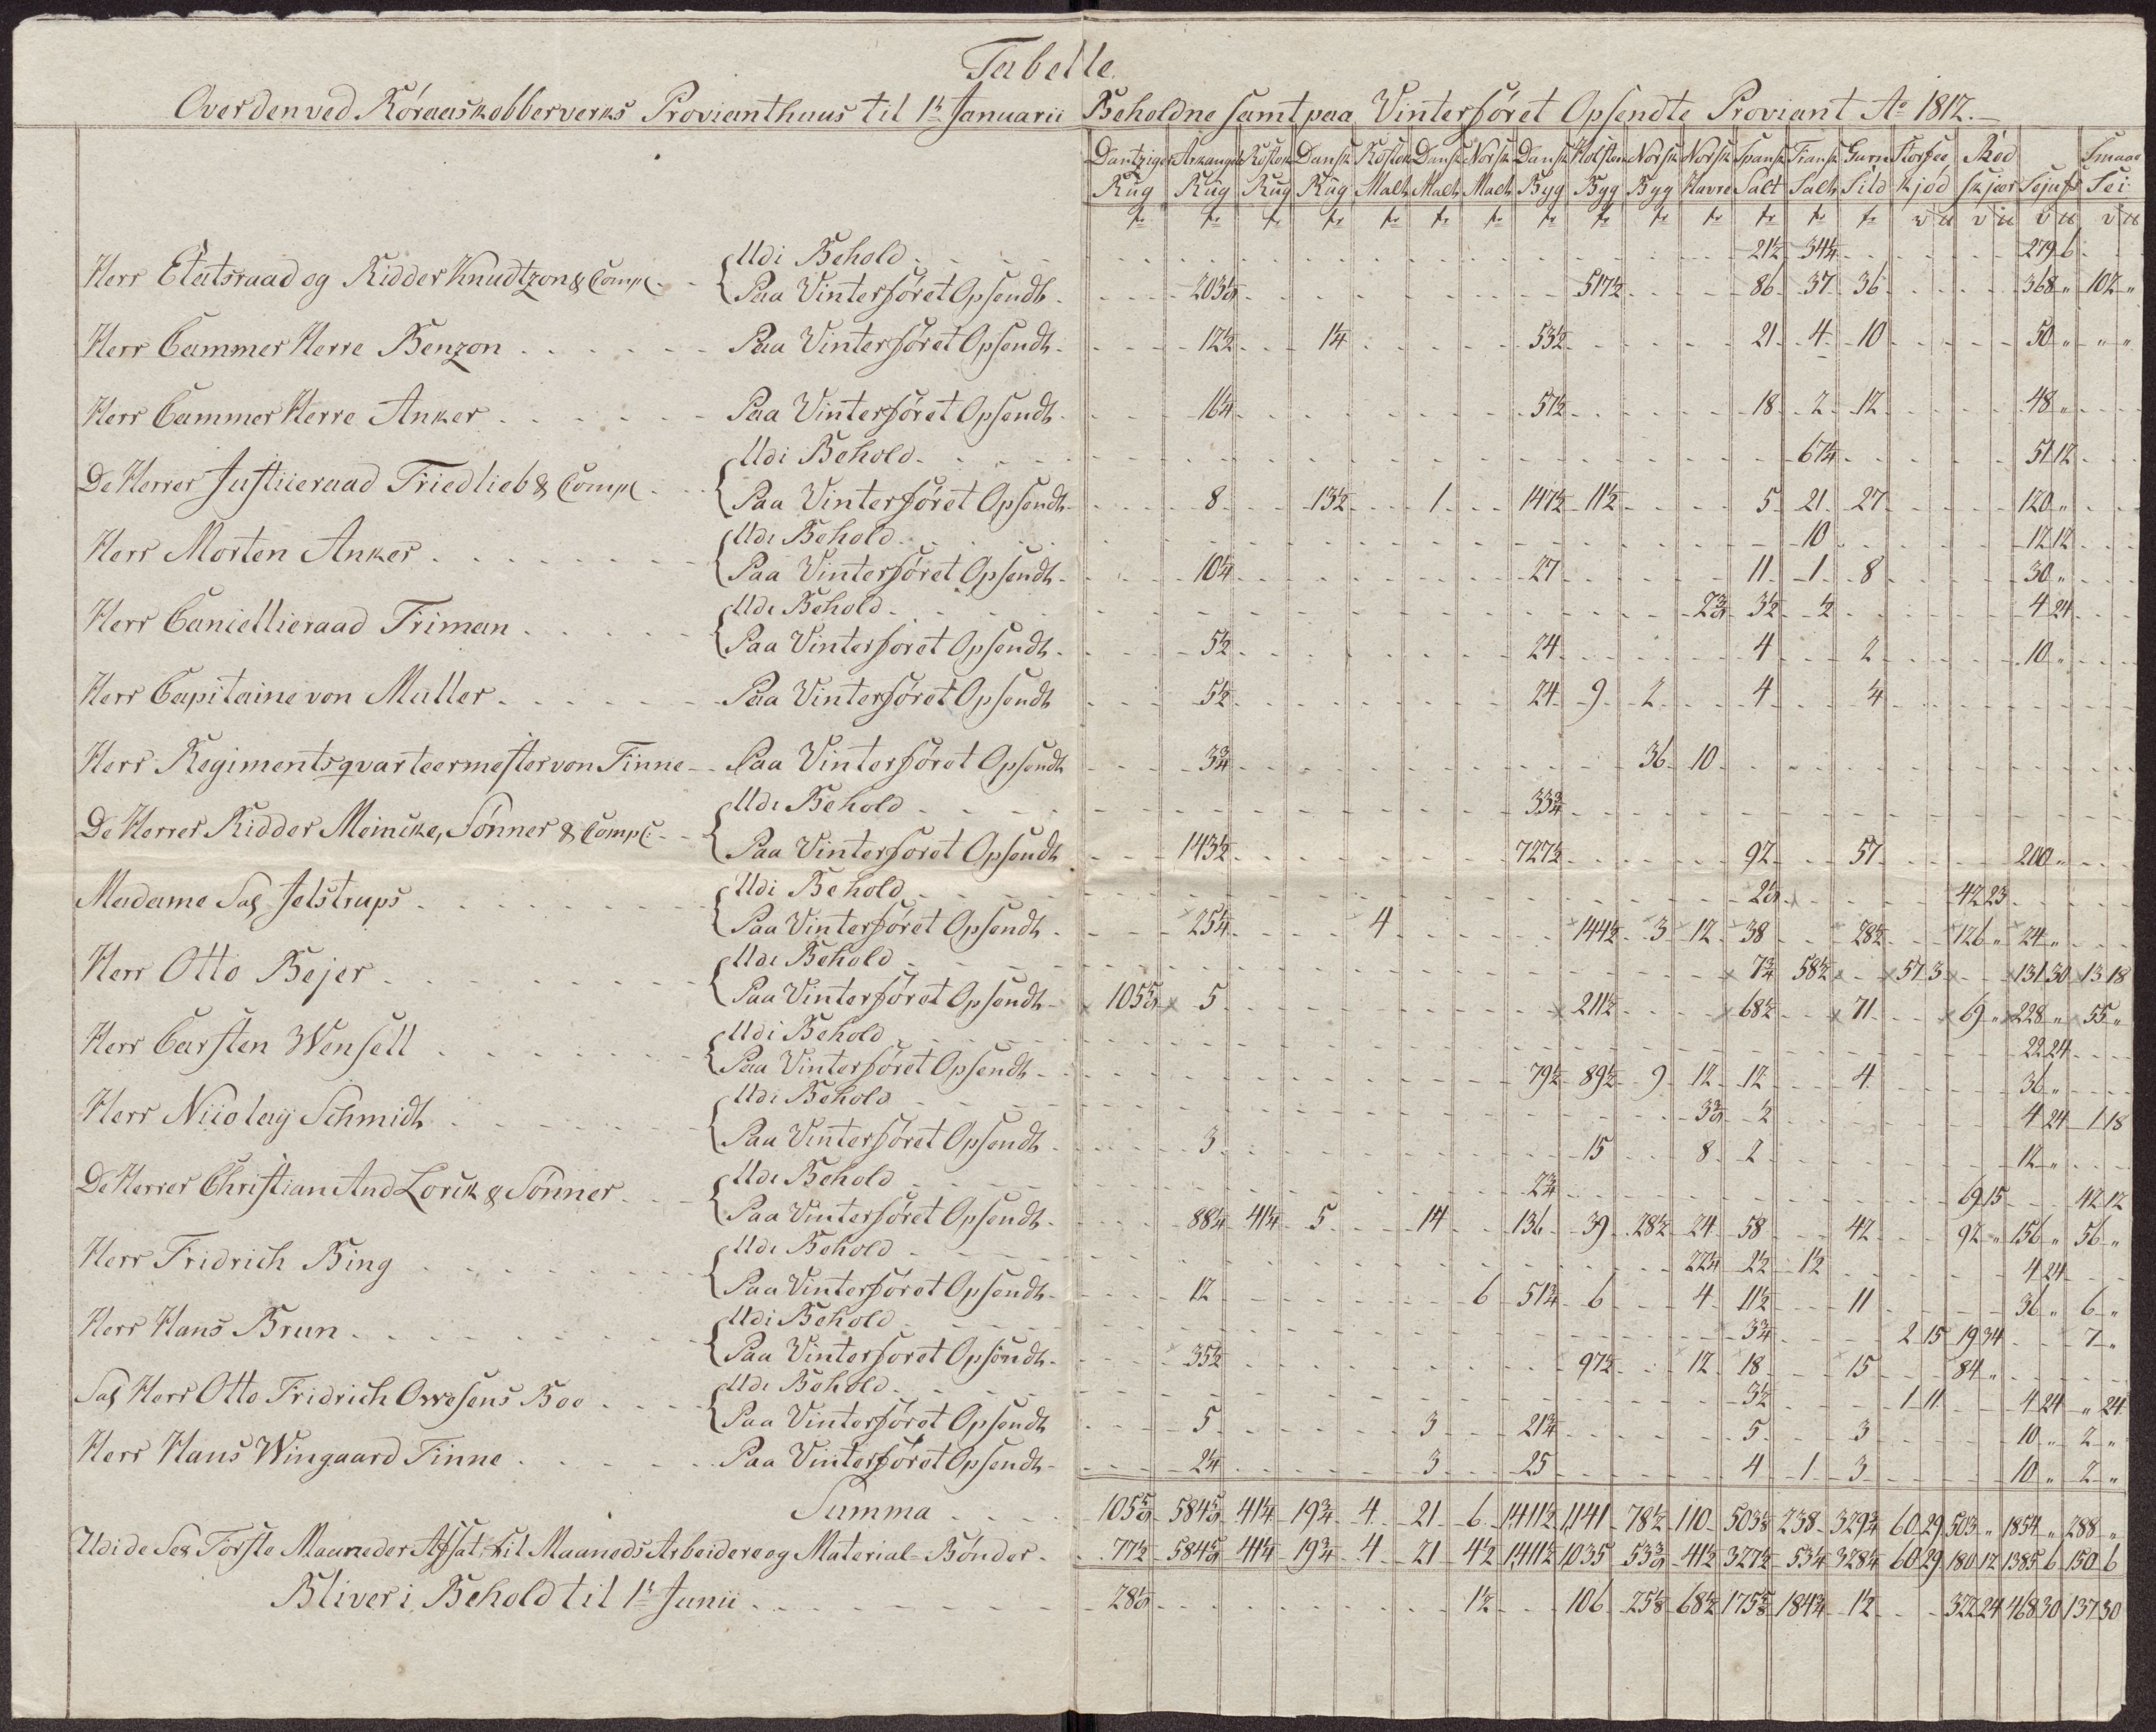 Tabelle.
Over den ved Röraas kobberverks Provianthuus til 1te Januarii Beholdne samt paa Vinterføret Opsendte Proviant Ao 1812.
Dantziger Rug | Arkangel Rug | Rostok Rug | Dansk Rug | Rostok Malt | Dansk Malt | Norsk Malt | Dansk Byg | Holsten Byg | Norsk Byg | Norsk Havre | Spansk Salt | Fransk Salt | Garn Sild | Storsei kjød | Rød skjær | Sejufs | Smaae Sei
Herr Etatsraad og Ridder Knudtzon & Comp
Udi Behold 21½ 34¼ 279 6
Paa Vinterføret Opsendt 517½ 86 37 36 368 " 102 "
Herr Cammer Herre Benzon Paa Vinterføret Opsendt 12½ 1¼ 53½ 21 4 10 50 " " "
Herr Cammer Herre Anker Paa Vinterføret Opsendt 16¼ 57½ 18 2 12 48 "
De Herrer Justiceraad Friedlieb & Comp
Udi Behold 67¼ 51 12
Paa Vinterføret Opsendt 8 13½ 1 147½ 11½ 5 21 27 120 "
Herr Morten Anker
Udi Behold 10 12 12
Paa Vinterføret Opsendt 10¼ 27 11 1 8 30 "
Herr Cancellieraad Friman
Udi Behold 3½ ½ 4 24
Paa Vinterføret Opsendt 5½ 24 4 2 10 "
Herr Capitaine von Müller Paa Vinterføret Opsendt 5½ 24 9 2 4
Herr Regimentsqvarteermester von Finne Paa Vinterføret Opsendt 3¾ 36 10
De Herrer Ridder Meincke, Sønner & Comp
Udi Behold 33¾
Paa Vinterføret Opsendt 143½ 727½ 92 57 200 "
Madame Sal Jelstrups
Udi Behold 42 23
Paa Vinterføret Opsendt 25¼ 4 144½ 3 12 38 28½ 126 " 24 "
Herr Otto Bejer
Udi Behold 7¾ 58½ 57 3 131 30 13 18
Paa Vinterføret Opsendt 105⅝ 5 211½ 68½ 71 69 " 228 " 55 "
Herr Carsten Wensell
Udi Behold 22 24
Paa Vinterføret Opsendt 79½ 89½ 9 12 12 4 36 "
Herr Nicolay Schmidt
Udi Behold ½ 4 24 1 18
Paa Vinterføret Opsendt 3 15 8 2 12 "
De Herrer Christian And Lorck & Sønner
Udi Behold 2¾ 69 15 42 12
Paa Vinterføret Opsendt 88¼ 41¼ 5 14 136 39 28½ 24 58 42 92 " 156 " 56 "
Herr Fridrich Bing
Udi Behold 22¾ 2½ 1½ 4 24
Paa Vinterføret Opsendt 12 6 51¾ 6 4 11½ 11 36 " 6 "
Herr Hans Brun
Udi Behold 3¾ 2 15 19 34 7 "
Paa Vinterføret Opsendt 35½ 97½ 12 18 15 84 "
Sal Herr Otto Fridrich Owesens Boe
Udi Behold 3½ 1 11 4 24 " 24
Paa Vinterføret Opsendt 5 3 21¾ 5 3 10 " 2 "
Herr Hans Wingaard Finne Paa Vinterføret Opsendt 2¼ 3 25 4 1 3 10 " 2 "
Summa 105⅝ 584⅝ 41¼ 19¾ 4 21 6 1411½ 1141 78½ 110 503⅛ 238 329¾ 60 29 503 " 1854 " 288 "
Udi de Sex Første Maaneder Afsat til Maaneds Arbeidere og Material-Bønder 77½ 584⅝ 41¼ 19¾ 4 21 4½ 1411½ 1035 53⅜ 41½ 327½ 53¼ 328¼ 60 29 180 12 1385 6 150 6
Bliver i Behold til 1te Junii 28⅛ 1½ 106 25⅛ 68½ 175⅝ 184¾ 1½ 322 24 468 30 137 30